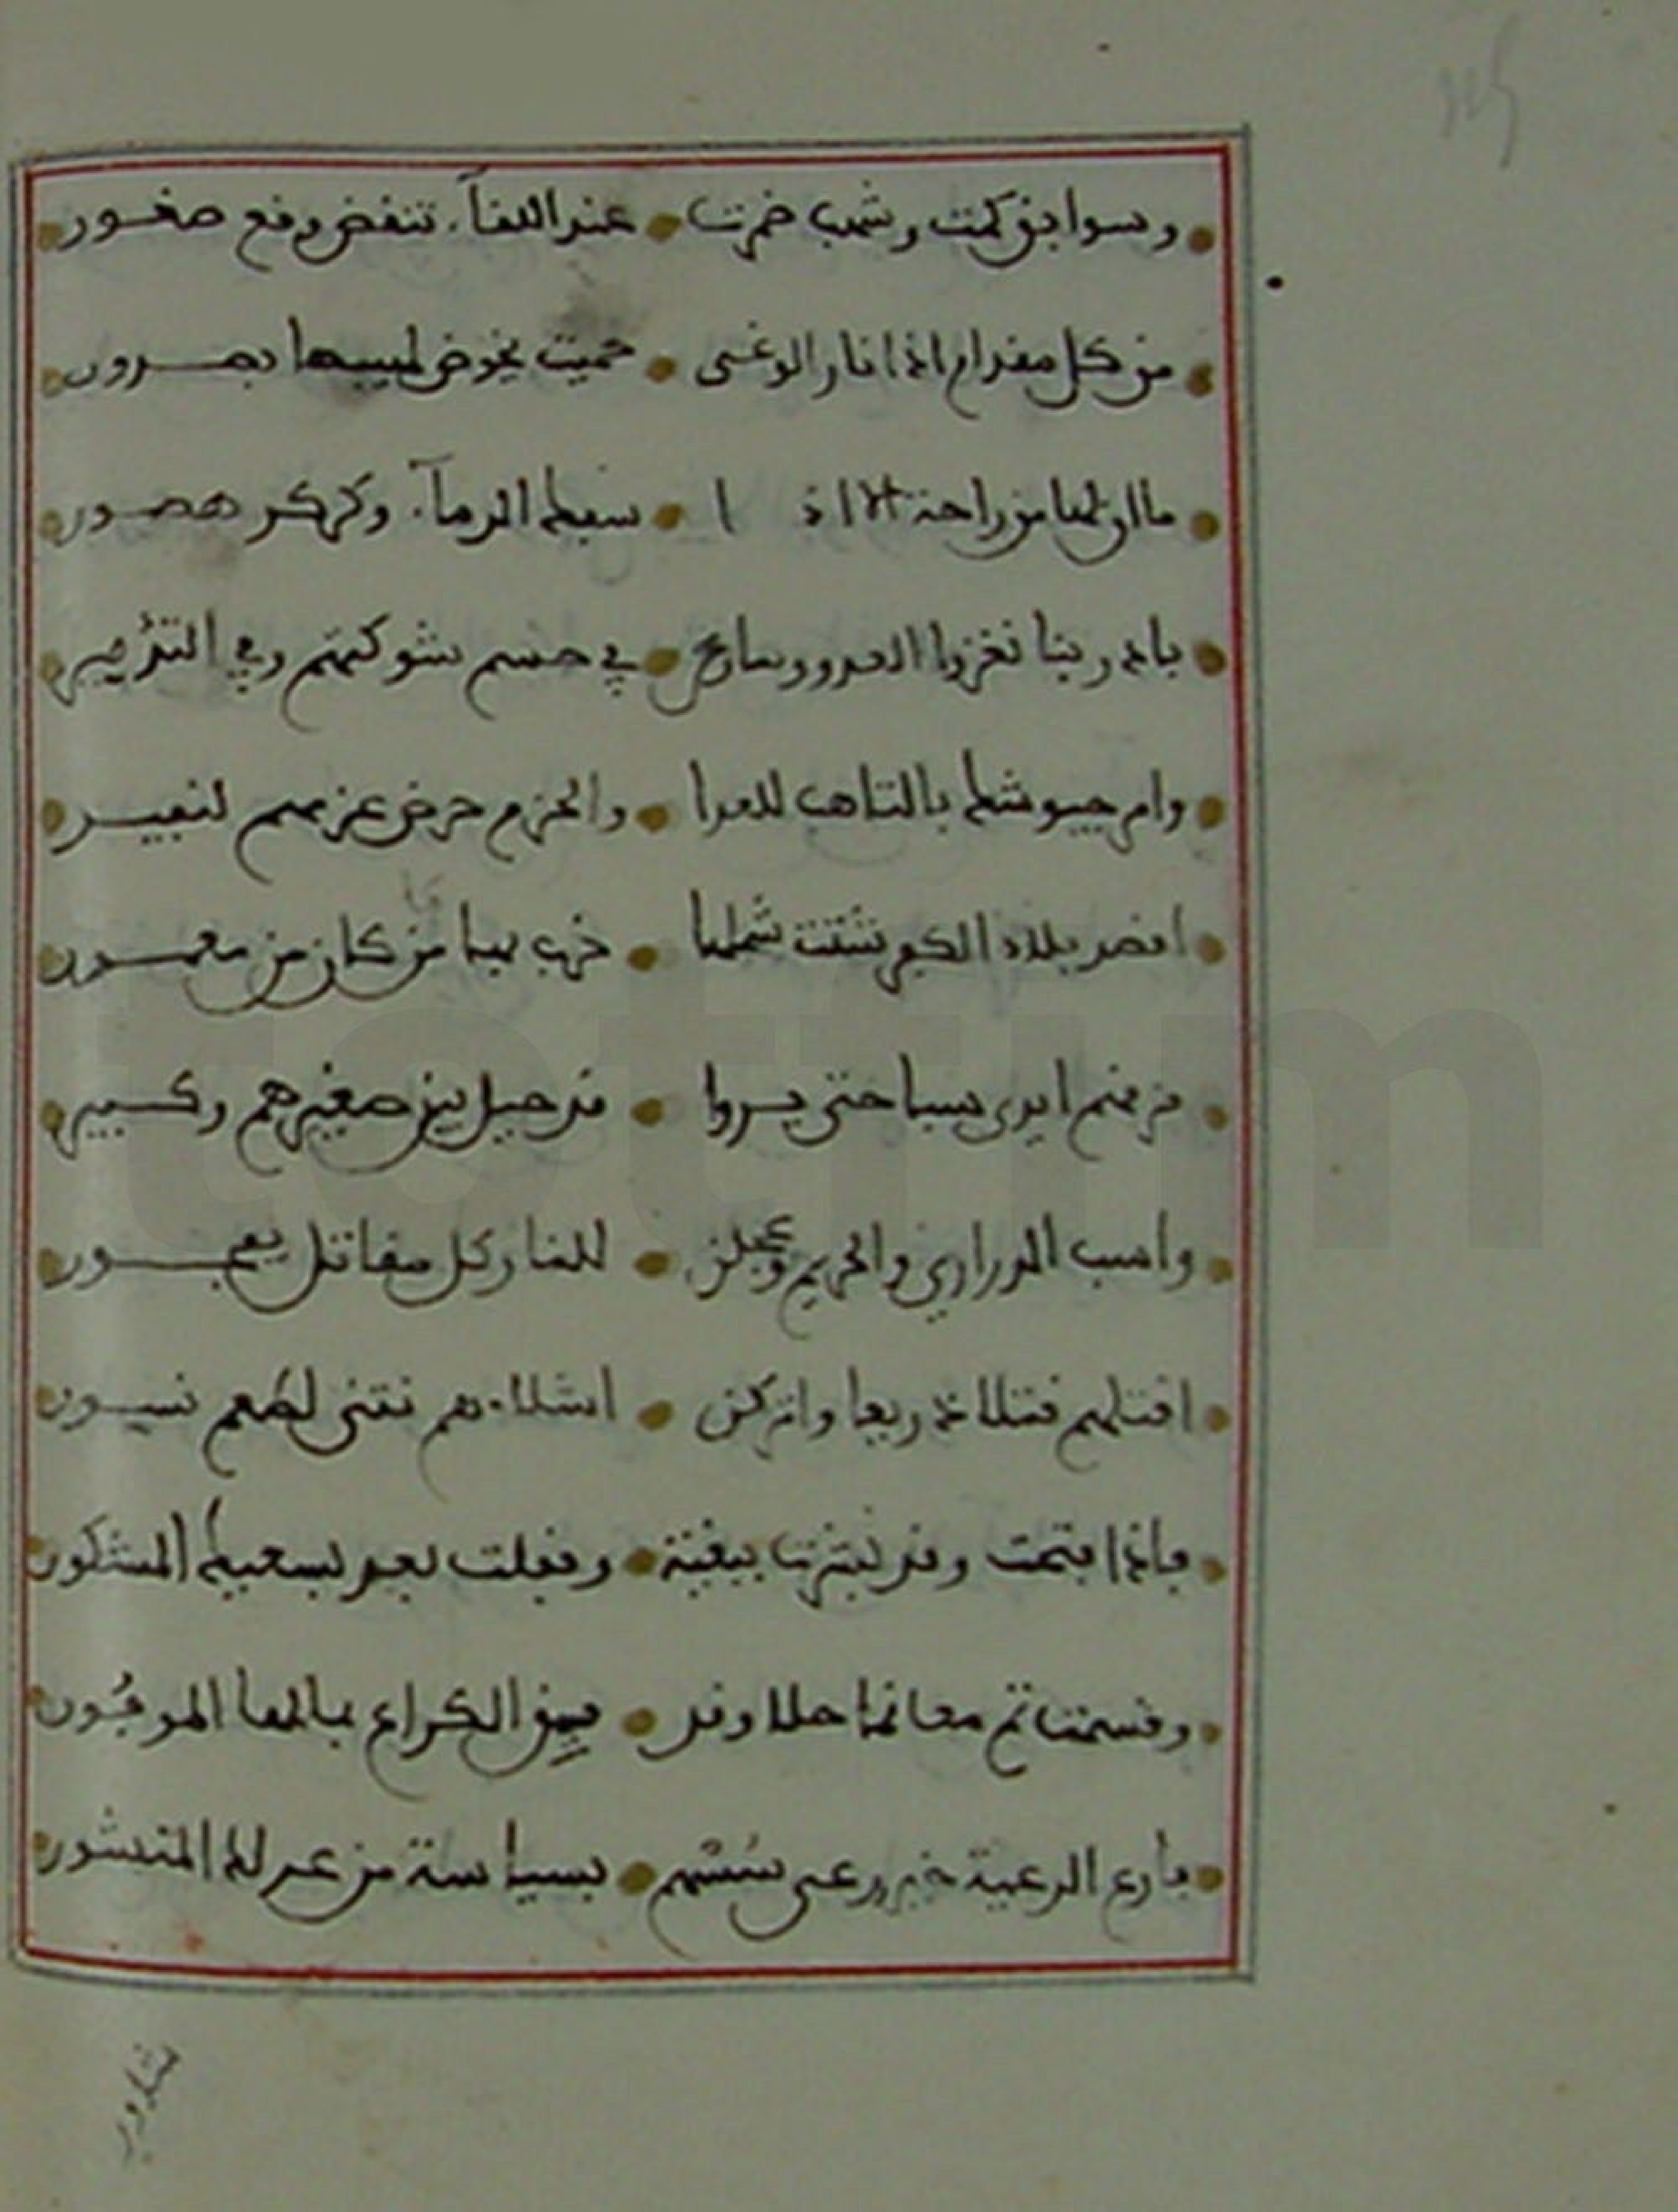 وسوابق كمت وشهب ضمرت عند اللقآء تنقض وقع صقور
من كل مقدام اذا نار الوغى حميت يخوض لهيبها بصرور
ما ان لها من راحة الا اذ ا سفك الدمآء وكر كر هصور
بادر بنا نغزوا العدو وسارع في حسم شوكتهم وفي التدمير
وامر جيوشك بالتاهب للعدا والحزم حرض عزمهم لنفير
اقصد بلاد الكفر شتت شملها خرب بها من كان من معمور
مزقهم ايدى سبا حتى يروا قد حيل بين صغيرهم وكبير
واسب الدراري والحريم وعجلن للنار كل مقاتل بفجور
اقتلهم قتلا ذريعا واتركن اشلاءهم تقتى لطعم نسور
فاذا فتحت وقد نشرت ببغية وقفلت بعد بسعيك المشكور
وقسمت ثم مغانما حلا وقد فيض الكراع بمالها الموفور
فارع الرعية خير رعى سسهم بسياسة من عدلك المنشور
شاور
totfim